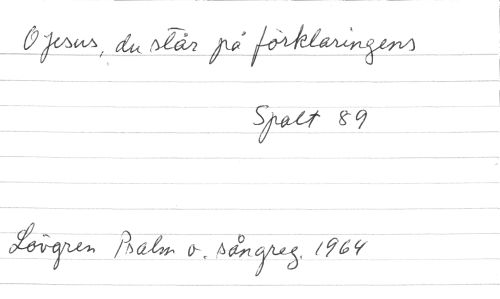 O Jesus, du står på förklaringens
Spalt 89
Lövgren Psalm o. sångreg. 1964